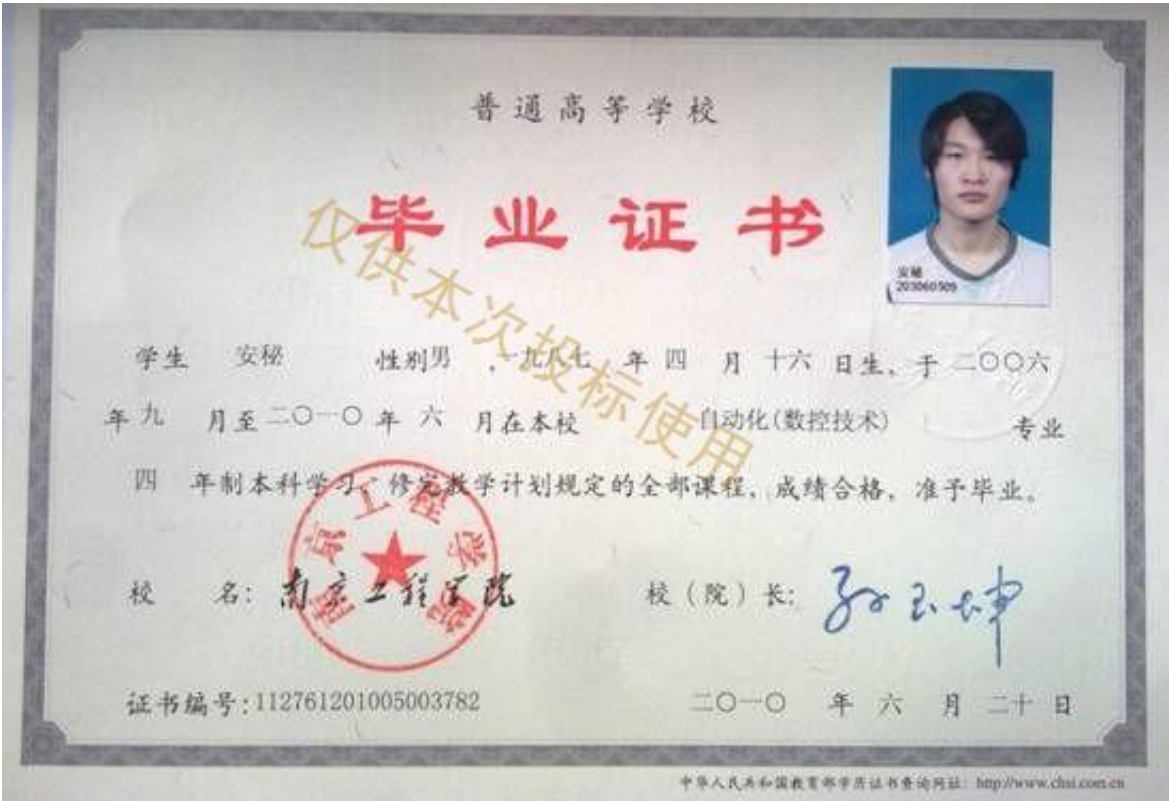 普通高等学校
毕业证书
安秘
203060509
仅供本次投标使用
学生 安秘 性别男，一九八七 年 四 月 十六 日生、于 二〇〇六
年 九 月至 二〇一〇 年 六 月在本校 自动化(数控技术) 专业
四 年制本科学习，修完教学计划规定的全部课程，成绩合格，准予毕业。
南京工程学院
校 名：南京工程学院 校（院）长：孙玉坤
证书编号：112761201005003782 二〇一〇 年 六 月 二十 日
中华人民共和国教育部学历证书查询网址：http://www.chsi.com.cn